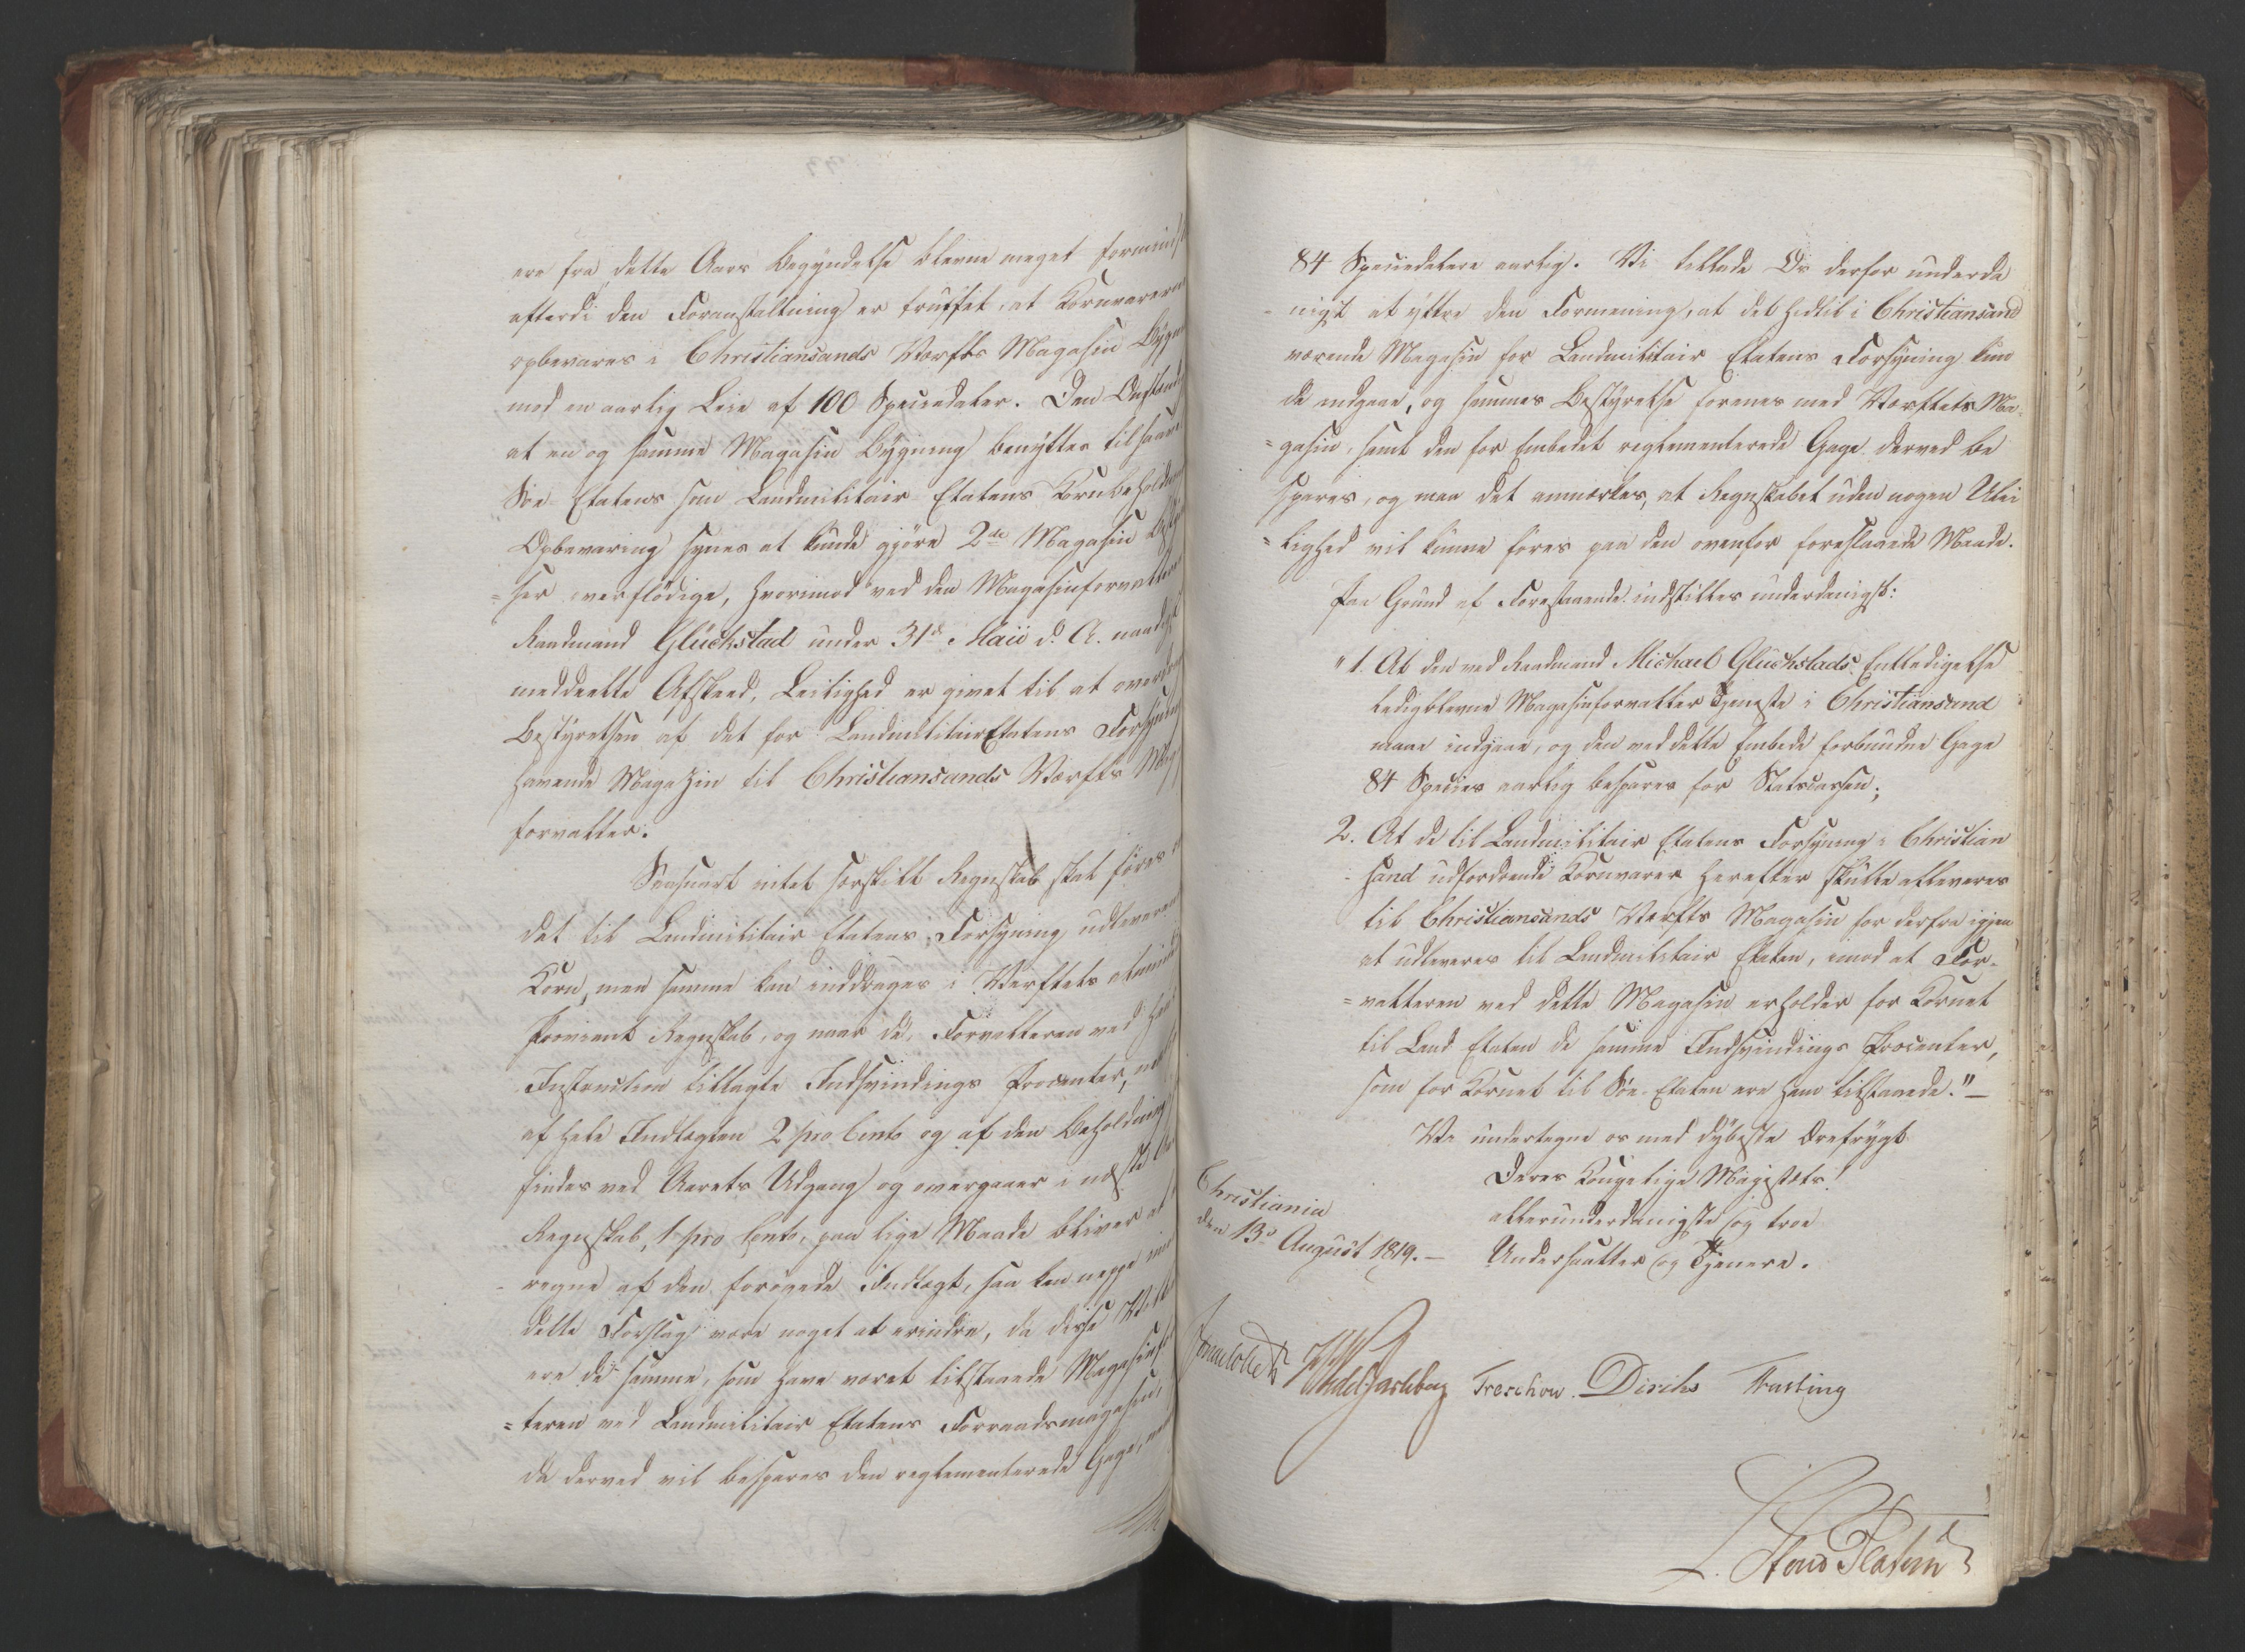 ere fra dette Aars Begyndelse blevne meget formind
efterdi den Foranstaltning er truffet, at Kornvarerne
opbevares i Christiansands Værfts Magasin Bygn
mod en aarlig Leie af 100 Speciedaler. Den Omstænd
at en og samme Magasin Bygning benyttes til saavel
Söe-Etatens som Landmilitair Etatens Kornbeholdn
Opbevaring synes at kunde gjöre 2de Magasin Besty
=ser overflödige, hvorimod ved den Magasinforvalter
Raadmand Glückstad under 31te Maii d. A. naadigst
meddeelte Afskeed, Leilighed er givet til at overdrag
Bestyrelsen af det for Landmilitair Etatens Forsyning
havende Magazin til Christiansands Værfts Mag
forvalter.
Saasnart intet særskilt Regnskab skal föres
det til Landmilitair Etatens Forsyning udleverede
Korn, men samme kan inddrages i Værftets almind
Proviant Regnskab, og naar de, Forvalteren ved hans
Instruction tillagte Indsvindings Procenter,
af hele Indtægten 2 pro Cento og af den Beholdning
findes ved Aarets Udgang og overgaaer i næste Aars
Regnskab, 1 pro Cento, paa lige Maade bliver at
regne af den forögede Indtægt, saa kan neppe imod
dette Forslag være noget at erindre, da disse
ere de samme, som have været tilstaaede Magasinfor
=teren ved Landmilitair Etatens Forraadsmagasin,
da derved vil bespares den reglementerede Gage,
84 Speciedalere aarlig. Vi tillade Os derfor underda
=nigst at yttre den Formening, at det hidtil i Christiansand
værende Magasin for Landmilitair Etatens Forsyning kun
de indgaae, og sammes Bestyrelse forenes med Værftets Ma
=gasin, samt den for Embedet reglementerede Gage derved be
spares, og maa det anmærkes, at Regnskabet uden nogen Ulei
=lighed vil kunne föres paa den ovenfor foreslaaede Maade.
Paa Grund af Forestaaende indstilles underdanigst:
"1. At den ved Raadmand Michael Glückstads Entledigelse
ledigblevne Magasinforvalter Tjeneste i Christiansand
maae indgaae, og den med dette Embede forbundne Gage
84 Species aarlig bespares for Statscassen;
2. At de til Landmilitair Etatens Forsyning i Christian
sand udfordrende Kornvarer herefter skulle afleveres
til Christiansands Værfts Magasin for derfra igjen
at udleveres til Landmilitair Etaten, imod at For-
=valteren ved dette Magasin erholder for Kornet
til Land Etaten de samme Indsvindings Procenter,
som for Kornet til Söe-Etaten ere ham tilstaaede."—
Vi undertegne os med dybeste Ærefrygt
Deres Kongelige Majestæts!
allerunderdanigste og troe
Undersaatter og Tjenere.
Christiania
den 13de August 1819.—
Jonas Collett WedelJarlsberg Treschow. Diriks Fasting
L. Stoud Platou